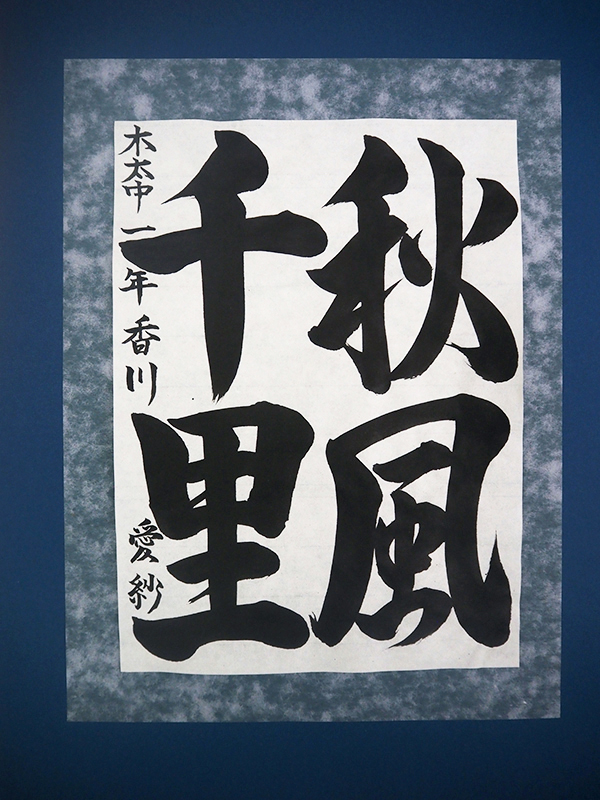 秋風
千里
木太中一年香川愛紗